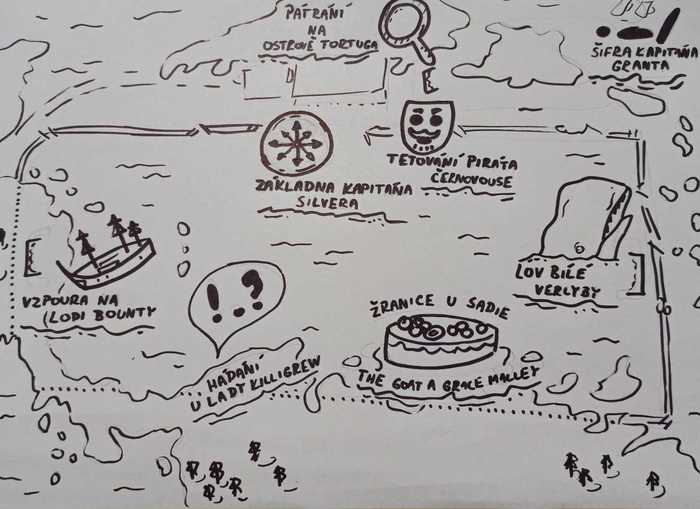 PÁTRÁNÍ
NA
OSTROVĚ TORTUGA
ŠIFRA KAPITÁŇA
GRANTA
TETOVÁNÍ PIRÁTA
ČERNOVOUSE
ZÁKLADNA KAPITÁŇA
SILVERA
LOV BÍLÉ
VERLYBY
VZPOURA NA
LODI BOUNTY
!..?
ŽRANICE U SADIE
THE GOAT A GRACE MALLEY
HÁDÁNÍ
U LADY KILLIGREW